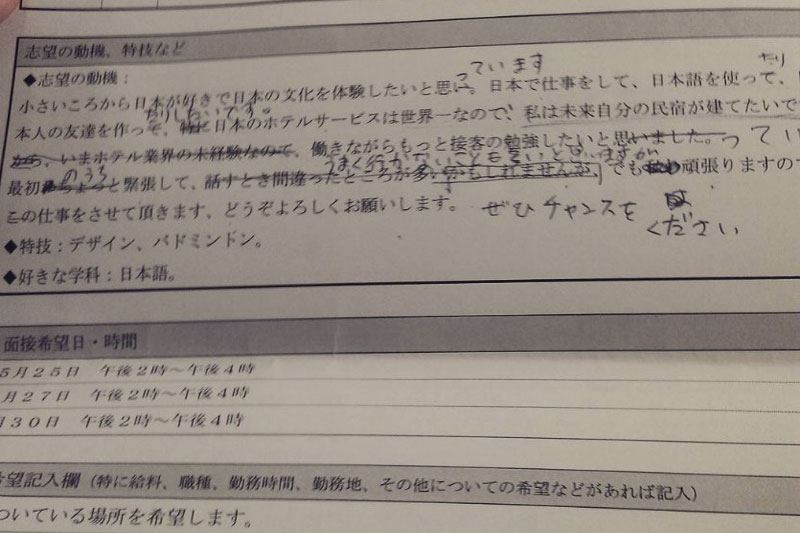 志望の動機、特技など
◆志望の動機：
っています たり
小さいころから日本が好きで日本の文化を体験したいと思い。日本で仕事をして、日本語を使って、
たりしたいです。
本人の友達を作って、特に日本のホテルサービスは世界一なので、私は未来自分の民宿が建てたいで
から、いまホテル業界の未経験なので、働きながらもっと接客の勉強したいと思いました。ってい
のうち うまく行かないことも多いと思いますが
最初ちょっと緊張して、話すとき間違ったところが多いかもしれませんが、でも 頑張りますので
この仕事をさせて頂きます、どうぞよろしくお願いします。 ぜひチャンスを
ください
◆特技：デザイン、バドミンドン。
◆好きな学科：日本語。
面接希望日・時間
5月25日 午後2時～午後4時
月27日 午後2時～午後4時
月30日 午後2時～午後4時
希望記入欄（特に給料、職種、勤務時間、勤務地、その他についての希望などがあれば記入）
ついている場所を希望します。